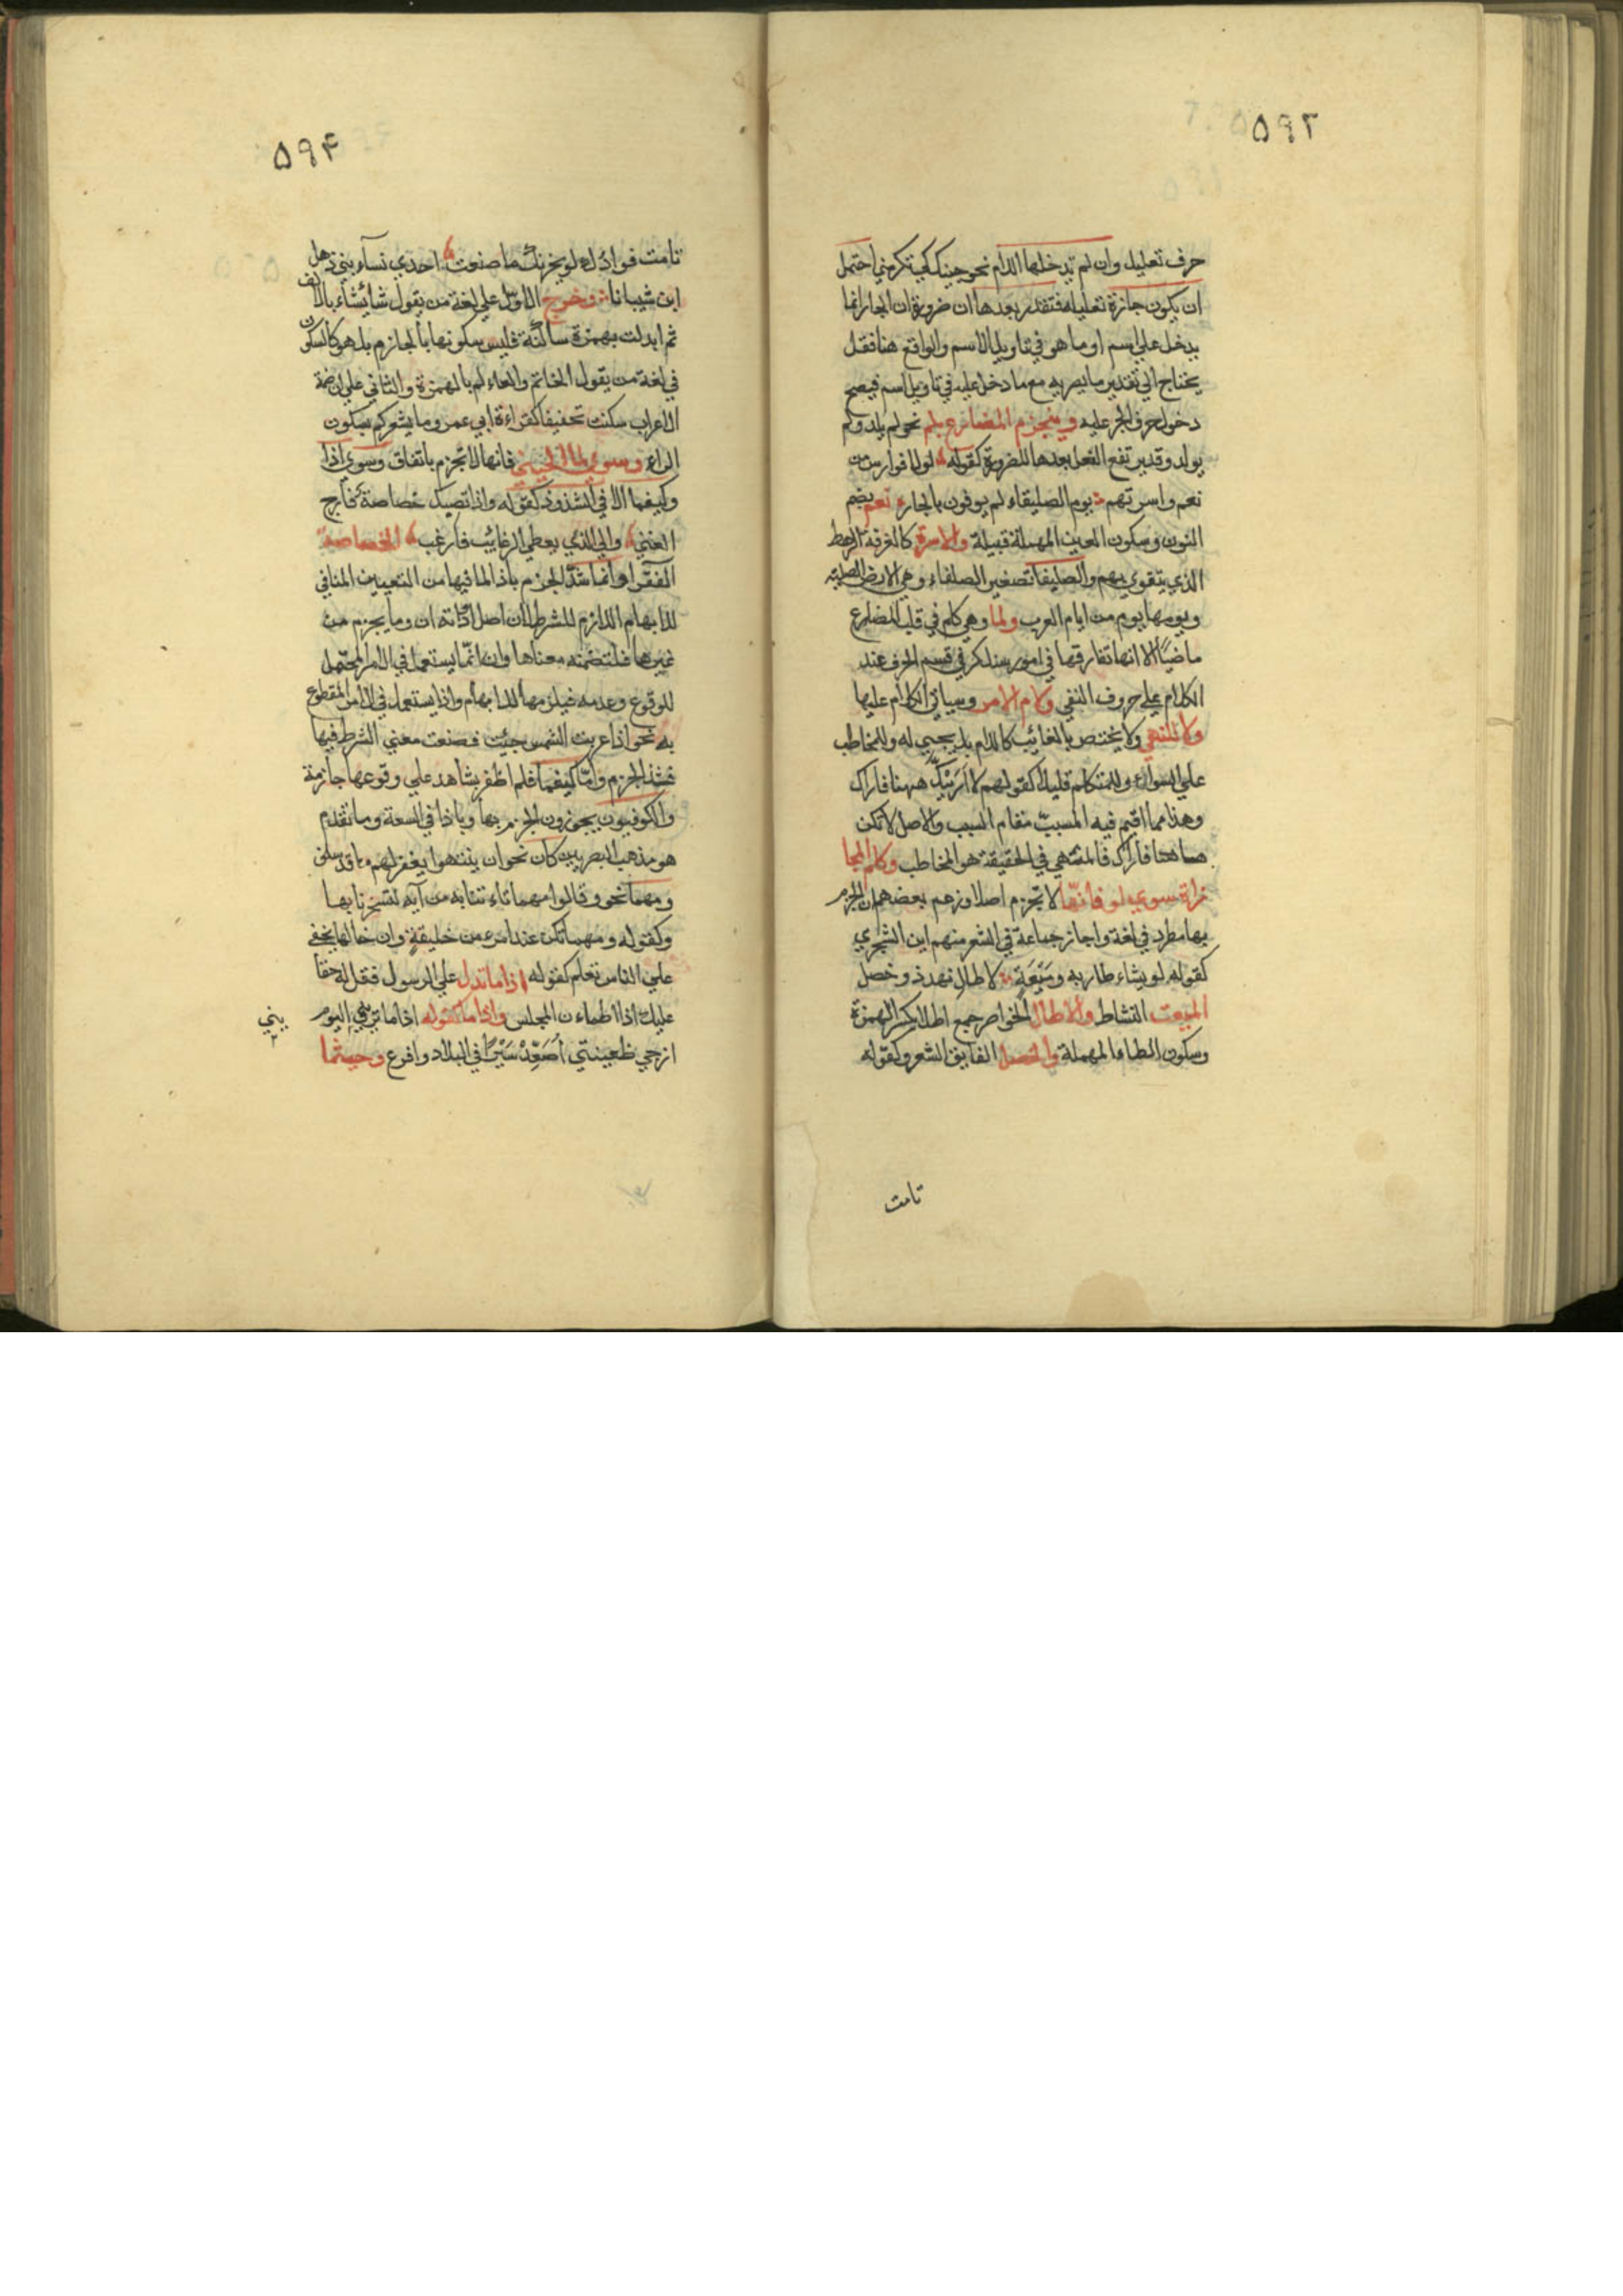 ۵۹۳
حرف تعليل وان لم تدخلها اللام نحو جيتك كي تكرمني احتمل
ان يكون جارة تعليله فتقدر بعدها ان ضرورة ان الجار انما
يدخل علي اسم او ما هو في تاويل الاسم والواقع هنا فعل
يحتاج الي تقدير ما يصر به مع ما دخل عليه في تاويل اسم فيصح
دخول حرف الجر عليه وينجزم المضارع بلم نحو لم يلد ولم
يولد وقد يرتفع الفعل بعدها للضرورة كقوله لولا فوارس من
نعم واسرتهم يوم الصليفاء لم يوفون بالجار نعم بضم
النون وسكون العين المهملة قبيلة والاسرة كالغرفة الرهط
الذي يتقوي بهم والصليفا تصغير الصلفاء وهي الارض الصلبة
ويومها يوم من ايام العرب ولما وهي كلم في قلب المضارع
ماضيا الا انها تفارقها في امور ستذكر في قسم الحرف عند
الكلام علي حروف النفي ولام الامر وسياتي الكلام عليها
ولا للنهي ولا يختص بالغائب كاللام بل يجيي له وللمخاطب
علي السواء وللمتكلم قليلا كقولهم لا ارينك ههنا فاراك
وهذا مما اقيم فيه المسبب مقام السبب والاصل لا تكن
ههنا فاراك فالمنهي في الحقيقة هو المخاطب وكلم المجا
زاة سوي لو فانها لا تجزم اصلا وزعم بعضهم ان الجزم
بها مطرد في لغة واجاز جماعة في الشعر منهم ابن الشجري
كقوله لو يشاء طار به وميعة لا طال نهد ذو خصل
الميعت النشاط والاطال الخواصر جمع اطل بكسر الهمزة
وسكون الطاء المهملة والخصل الفايق الشعر وكقوله
تامت
۵۹۴
تامت فوادك لو يحزنك ما صنعت احدي نساء بني ذهل
ابن شيبانا وخرج الاول علي لغة من يقول شا يشاء بالالف
ثم ابدلت بهمزة ساكنة فليس سكونها بالجازم بل هو كالسكون
في لغة من يقول الخاتم والعالم بالهمزة والثاني علي ان ضمة
الاعراب سكنت تخفيفا كقراءة ابي عمرو ما يشعركم بسكون
الراء وسوي لما الحيني فانها لا تجزم باتفاق وسوي اذا
وكيفما الا في الشذوذ كقوله واذا تصبك خصاصة فارج
الغني والي الذي يعطي الرغائب فارغب الخصاصة
الفقر وانما شذ الجزم باذا لما فيها من التعيين المنافي
للابهام اللازم للشرط لان اصل اداته ان وما يجزم من
غيرها فلتضمنه معناها وان انما يستعمل في الامر المحتمل
للوقوع وعدمه فيلزمها الابهام واذا يستعمل في الامر المقطوع
به نحو اذا غربت الشمس جئت فضعف معني الشرط فيها
فشذ الجزم واما كيفما فلم اظفر بشاهد علي وقوعها جازمة
والكوفيون يجوزون الجزم بها وباذا في السعة وما تقدم
هو مذهب البصريين كان نحو ان ينتهوا يغفر لهم ما قد سلف
ومهما نحو وقالوا مهما تاء تنا به من آية لتسحرنا بها
وكقوله ومهما تكن عند امرء من خليقة وان خالها تخفي
علي الناس تعلم كقوله اذا ما تدل علي الرسول فقل له حقا
عليك اذا اطماءن المجلس واذا ما كقوله اذا ما تريني اليوم
ازجي ظعينتي اصعد سيرا في البلاد وافرع وحيثما
يني